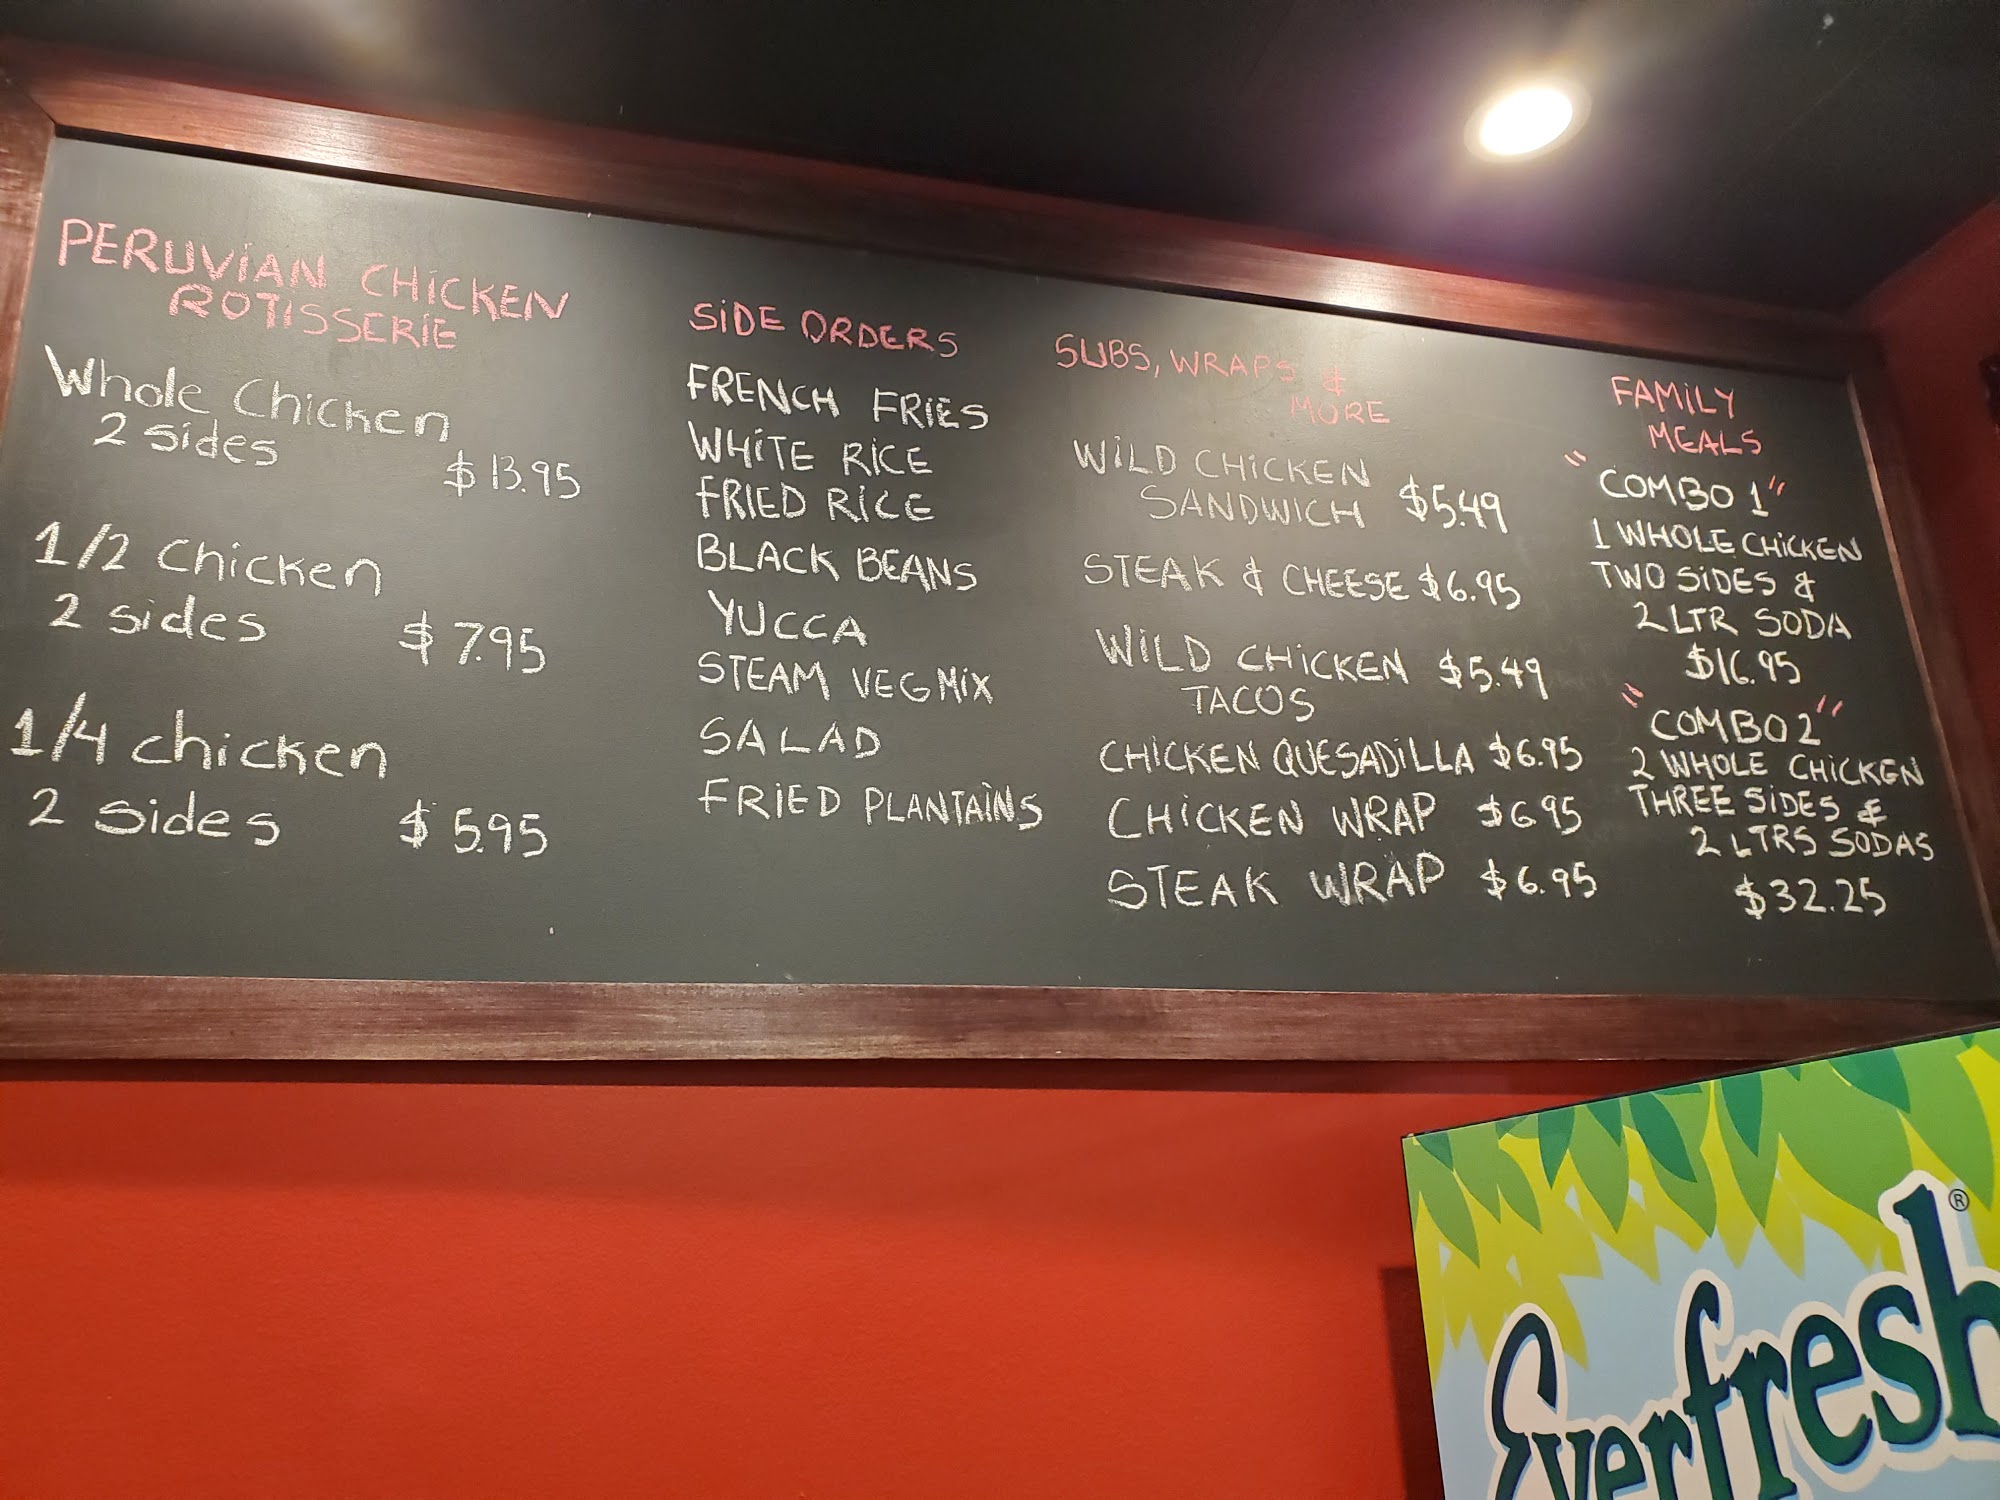 PERUVIAN CHICKEN
ROTISSERIE
Whole Chicken
2 sides
$13.95
1/2 Chicken
2 sides
$7.95
1/4 chicken
2 sides
$5.95
SIDE ORDERS
FRENCH FRIES
WHITE RICE
FRIED RICE
BLACK BEANS
YUCCA
STEAM VEG MIX
SALAD
FRIED PLANTAINS
SUBS, WRAPS &
MORE
WILD CHICKEN
SANDWICH $5.49
STEAK & CHEESE $6.95
WILD CHICKEN $5.49
TACOS
CHICKEN QUESADILLA $6.95
CHICKEN WRAP $6.95
STEAK WRAP $6.95
FAMILY
MEALS
"COMBO 1"
1 WHOLE CHICKEN
TWO SIDES &
2 LTR SODA
$16.95
"COMBO 2"
2 WHOLE CHICKEN
THREE SIDES &
2 LTRS SODAS
$32.25
Everfresh®